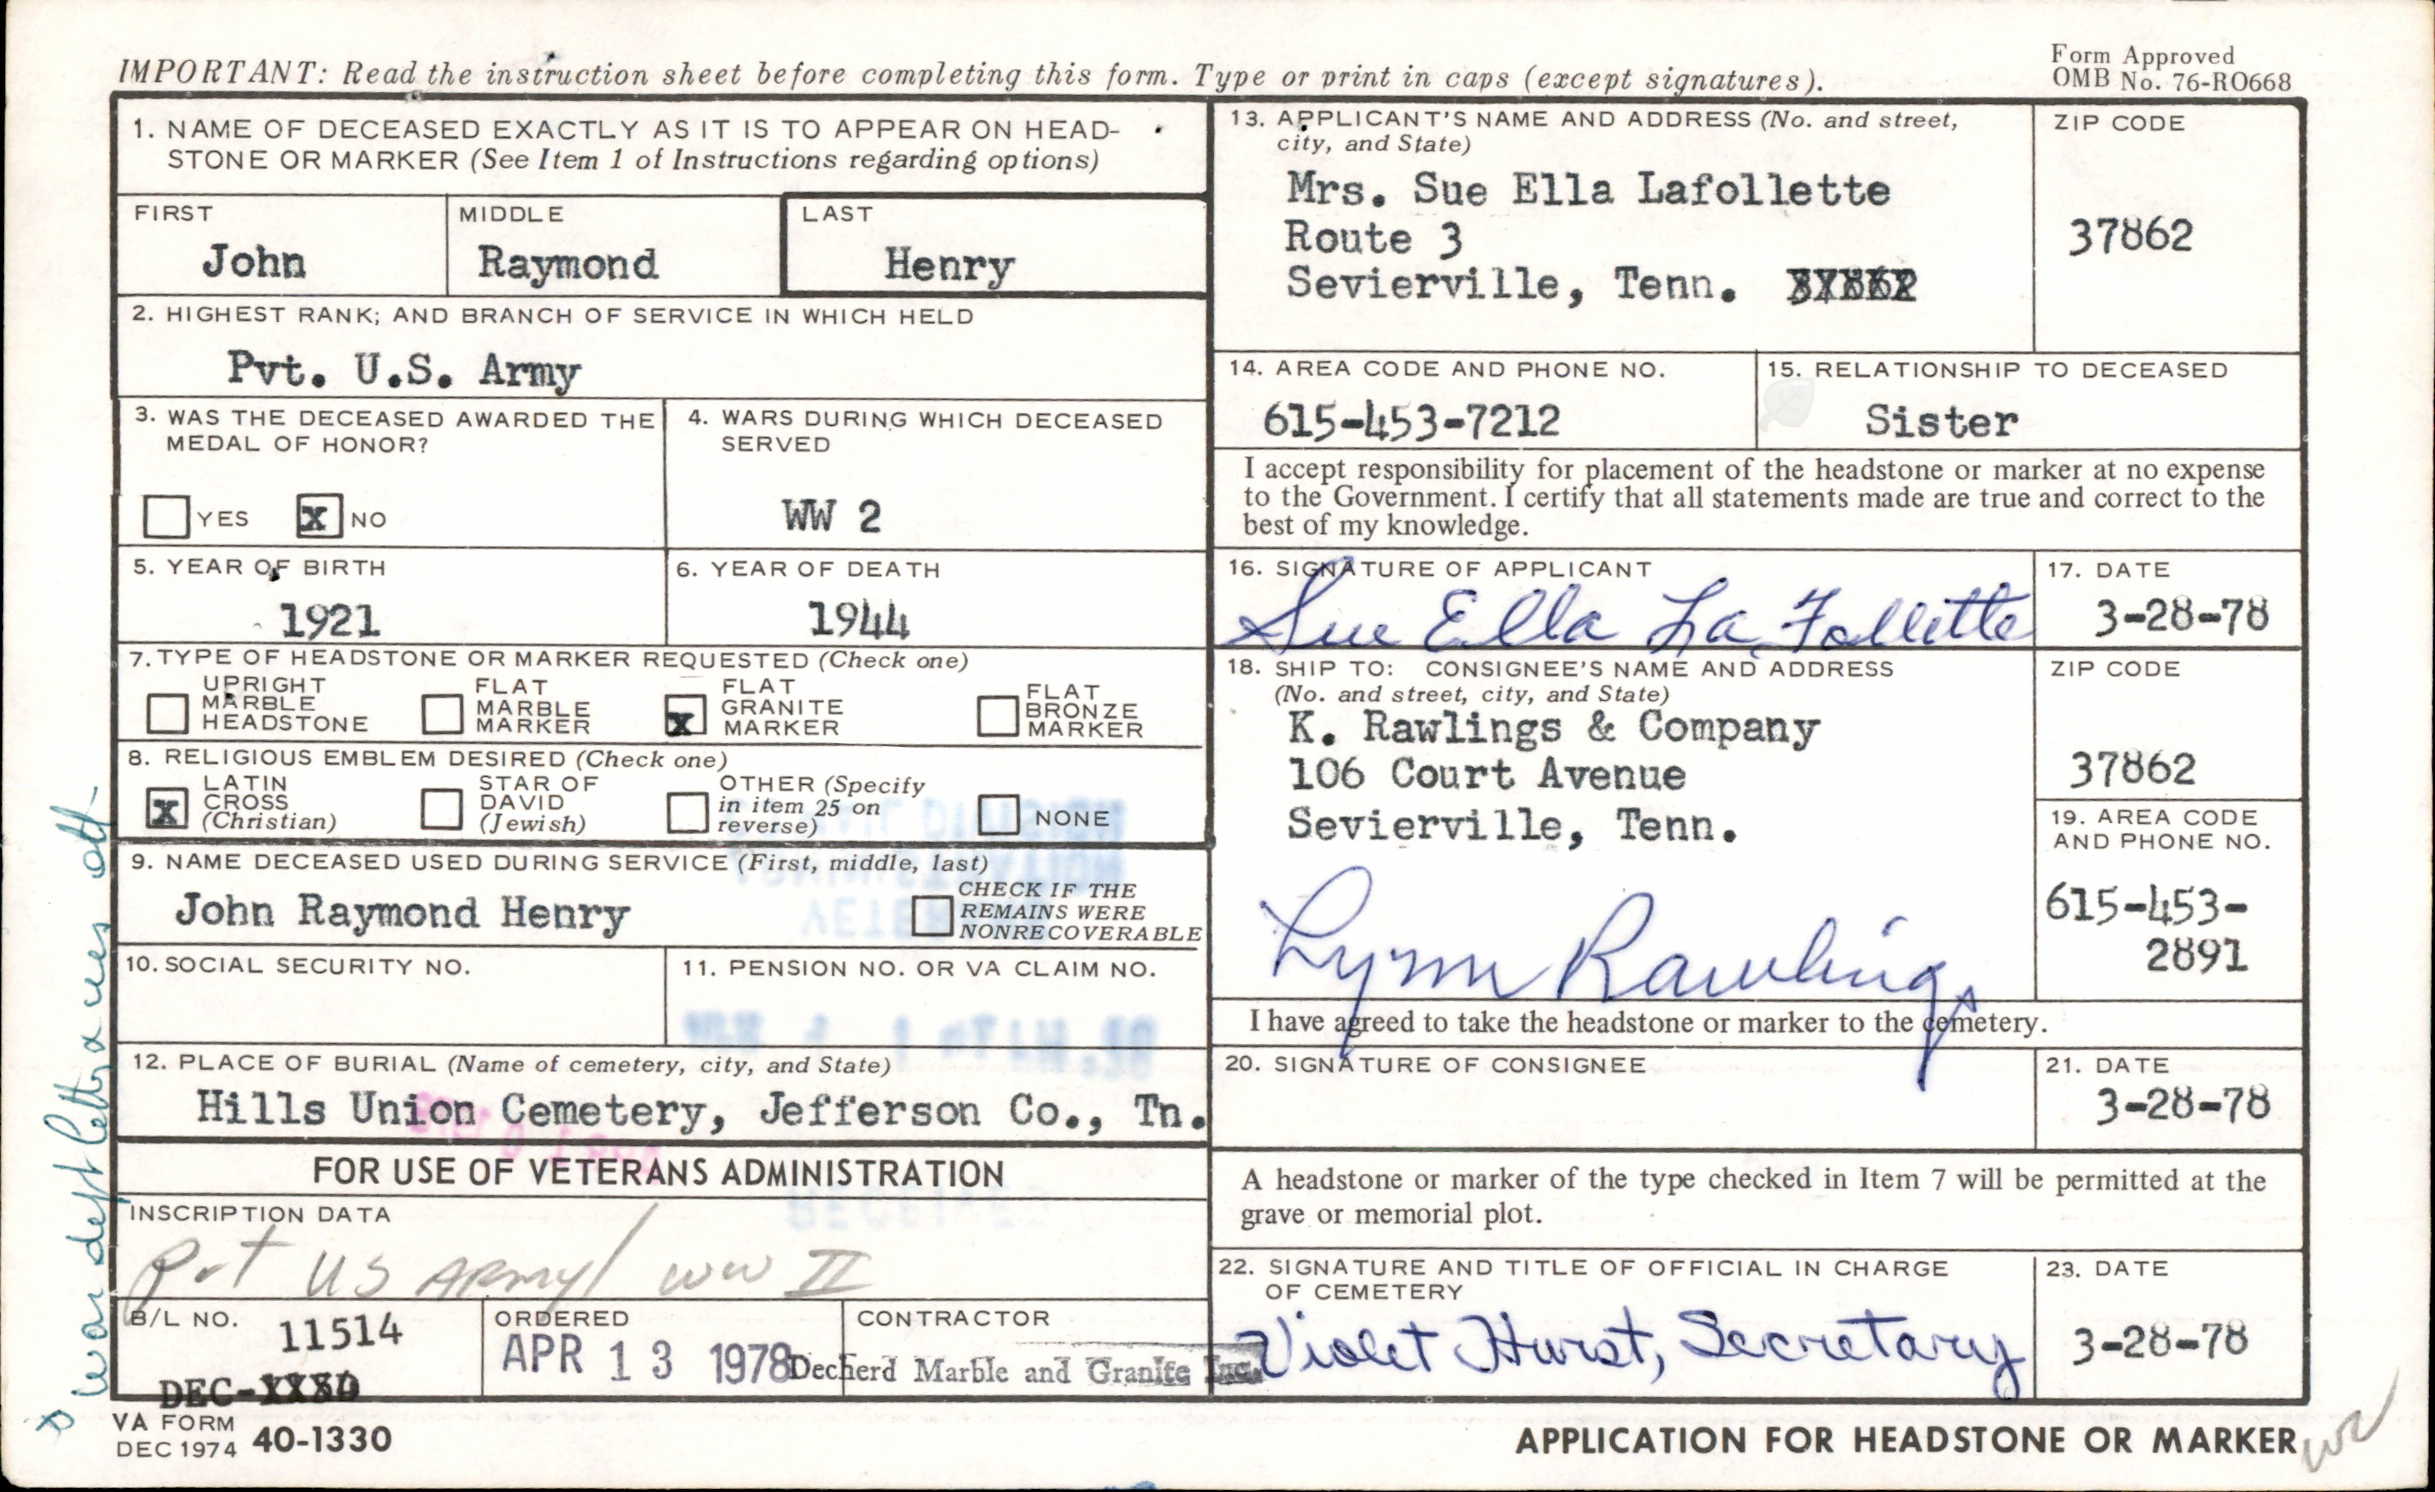 IMPORTANT: Read the instruction sheet before completing this form. Type or print in caps (except signatures).
Form Approved
OMB No. 76-RO668
1. NAME OF DECEASED EXACTLY AS IT IS TO APPEAR ON HEAD-
STONE OR MARKER (See Item 1 of Instructions regarding options)
FIRST MIDDLE LAST
John Raymond Henry
2. HIGHEST RANK; AND BRANCH OF SERVICE IN WHICH HELD
Pvt. U.S. Army
3. WAS THE DECEASED AWARDED THE
MEDAL OF HONOR?
YES X NO
4. WARS DURING WHICH DECEASED
SERVED
WW 2
5. YEAR OF BIRTH
1921
6. YEAR OF DEATH
1944
7. TYPE OF HEADSTONE OR MARKER REQUESTED (Check one)
UPRIGHT
MARBLE
HEADSTONE
FLAT
MARBLE
MARKER
X
FLAT
GRANITE
MARKER
FLAT
BRONZE
MARKER
8. RELIGIOUS EMBLEM DESIRED (Check one)
X
LATIN
CROSS
(Christian)
STAR OF
DAVID
(Jewish)
OTHER (Specify
in item 25 on
reverse)
NONE
9. NAME DECEASED USED DURING SERVICE (First, middle, last)
John Raymond Henry
CHECK IF THE
REMAINS WERE
NONRECOVERABLE
10. SOCIAL SECURITY NO.
11. PENSION NO. OR VA CLAIM NO.
12. PLACE OF BURIAL (Name of cemetery, city, and State)
Hills Union Cemetery, Jefferson Co., Tn.
FOR USE OF VETERANS ADMINISTRATION
INSCRIPTION DATA
Pvt US ARMY/ WW II
B/L NO.
11514
DEC-
ORDERED
APR 13 1978
CONTRACTOR
Decherd Marble and Granite Inc.
VA FORM
DEC 1974 40-1330
war dept letter
13. APPLICANT'S NAME AND ADDRESS (No. and street,
city, and State)
Mrs. Sue Ella Lafollette
Route 3
Sevierville, Tenn.
ZIP CODE
37862
14. AREA CODE AND PHONE NO.
615-453-7212
15. RELATIONSHIP TO DECEASED
Sister
I accept responsibility for placement of the headstone or marker at no expense
to the Government. I certify that all statements made are true and correct to the
best of my knowledge.
16. SIGNATURE OF APPLICANT
Sue Ella La Follette
17. DATE
3-28-78
18. SHIP TO: CONSIGNEE'S NAME AND ADDRESS
(No. and street, city, and State)
K. Rawlings & Company
106 Court Avenue
Sevierville, Tenn.
ZIP CODE
37862
19. AREA CODE
AND PHONE NO.
615-453-
2891
Lynn Rawlings
I have agreed to take the headstone or marker to the cemetery.
20. SIGNATURE OF CONSIGNEE
21. DATE
3-28-78
A headstone or marker of the type checked in Item 7 will be permitted at the
grave or memorial plot.
22. SIGNATURE AND TITLE OF OFFICIAL IN CHARGE
OF CEMETERY
Violet Hurst, Secretary
23. DATE
3-28-78
APPLICATION FOR HEADSTONE OR MARKER